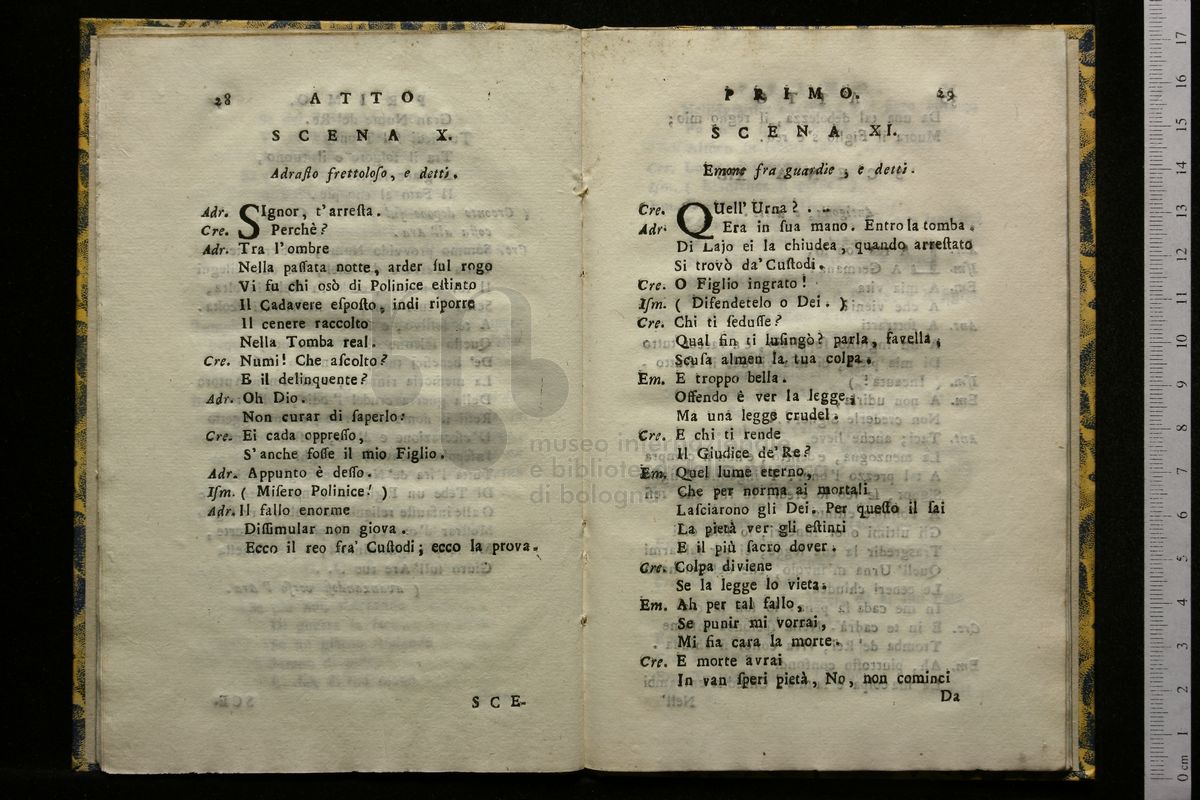 28 ATTO
SCENA X.
Adraſto frettoloſo, e detti.
Adr. SIgnor, t'arreſta.
Cre. Perchè?
Adr. Tra l'ombre
Nella paſſata notte, arder ſul rogo
Vi fu chi osò di Polinice eſtinto
Il Cadavere eſpoſto, indi riporre
Il cenere raccolto
Nella Tomba real.
Cre. Numi! Che aſcolto?
E il delinquente?
Adr. Oh Dio.
Non curar di ſaperlo:
Cre. Ei cada oppreſſo,
S'anche foſſe il mio Figlio.
Adr. Appunto è deſſo.
Iſm. ( Miſero Polinice! )
Adr. Il fallo enorme
Diſſimular non giova.
Ecco il reo fra' Cuſtodi; ecco la prova.
SCE-
PRIMO. 29
SCENA XI.
Emone fra guardie, e detti.
Cre. QUell' Urna? . .
Adr. Era in ſua mano. Entro la tomba
Di Lajo ei la chiudea, quando arreſtato
Si trovò da' Cuſtodi.
Cre. O Figlio ingrato!
Iſm. ( Difendetelo o Dei. )
Cre. Chi ti ſeduſſe?
Qual fin ti luſingò? parla, favella,
Scuſa almen la tua colpa.
Em. E troppo bella.
Offendo è ver la legge,
Ma una legge crudel.
Cre. E chi ti rende
Il Giudice de' Re?
Em. Quel lume eterno,
Che per norma ai mortali
Laſciarono gli Dei. Per queſto il ſai
La pietà ver gli eſtinti
E il più ſacro dover.
Cre. Colpa diviene
Se la legge lo vieta.
Em. Ah per tal fallo,
Se punir mi vorrai,
Mi fia cara la morte.
Cre. E morte avrai
In van ſperi pietà, No, non cominci
Da
museo internazionale
e biblioteca
di bologna